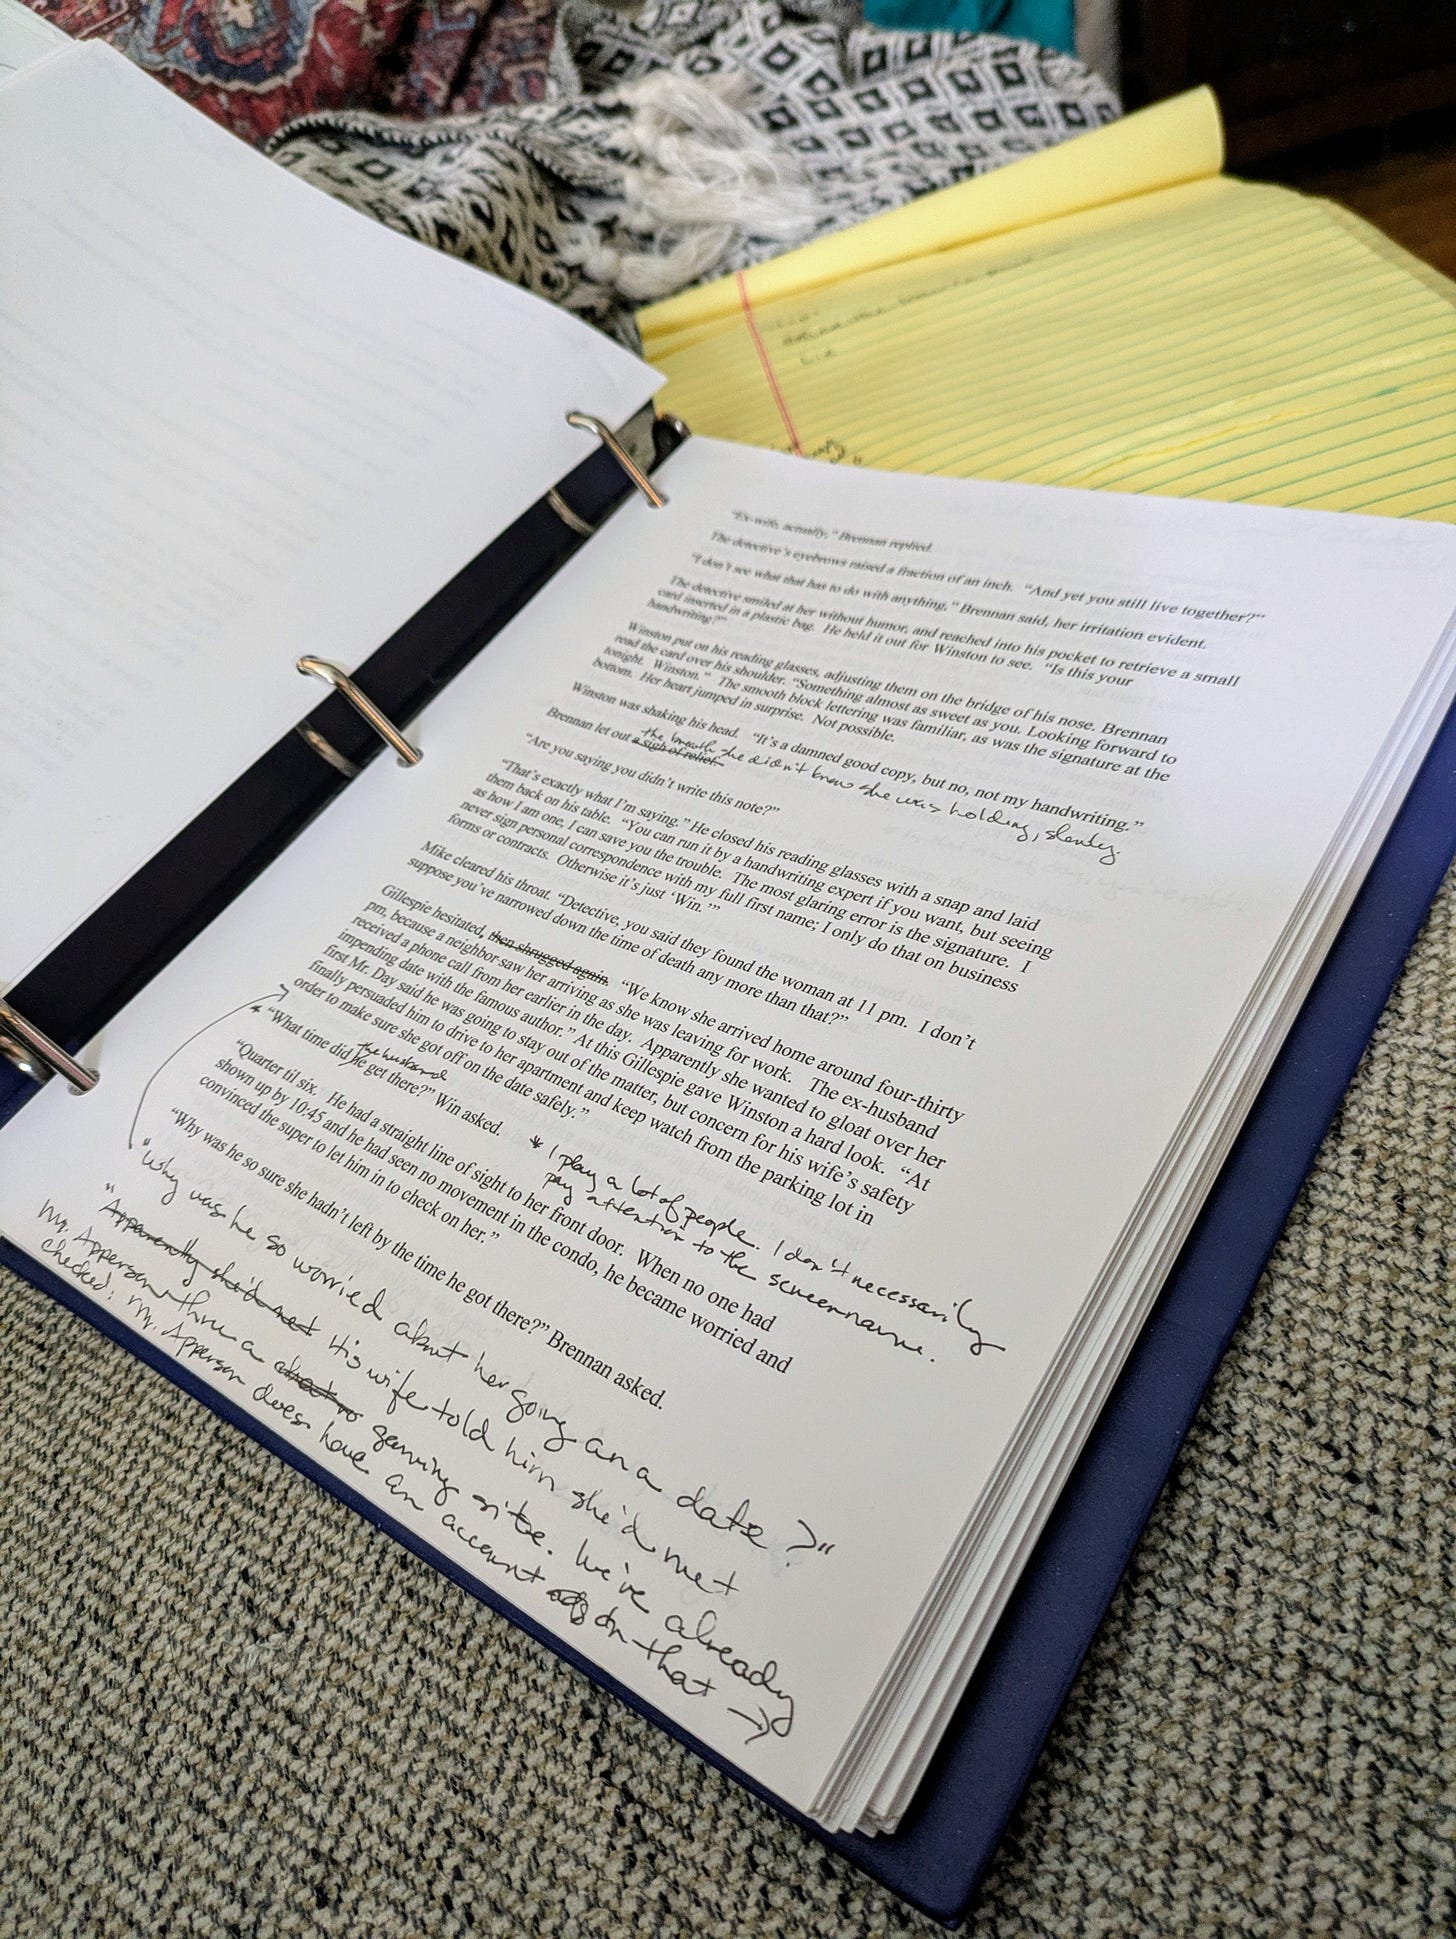 "Ex-wife, actually," Brennan replied.
The detective's eyebrows raised a fraction of an inch. "And yet you still live together?"
"I don't see what that has to do with anything," Brennan said, her irritation evident.
The detective smiled at her without humor, and reached into his pocket to retrieve a small
card inserted in a plastic bag. He held it out for Winston to see. "Is this your
handwriting?"
Winston put on his reading glasses, adjusting them on the bridge of his nose. Brennan
read the card over his shoulder. "Something almost as sweet as you. Looking forward to
tonight. Winston." The smooth block lettering was familiar, as was the signature at the
bottom. Her heart jumped in surprise. Not possible.
Winston was shaking his head. "It's a damned good copy, but no, not my handwriting."
the breath she didn't know she was holding, slowly.
Brennan let out a sigh of relief.
"Are you saying you didn't write this note?"
"That's exactly what I'm saying." He closed his reading glasses with a snap and laid
them back on his table. "You can run it by a handwriting expert if you want, but seeing
as how I am one, I can save you the trouble. The most glaring error is the signature. I
never sign personal correspondence with my full first name; I only do that on business
forms or contracts. Otherwise it's just 'Win.'"
Mike cleared his throat. "Detective, you said they found the woman at 11 pm. I don't
suppose you've narrowed down the time of death any more than that?"
Gillespie hesitated, then shrugged again. "We know she arrived home around four-thirty
pm, because a neighbor saw her arriving as she was leaving for work. The ex-husband
received a phone call from her earlier in the day. Apparently she wanted to gloat over her
impending date with the famous author." At this Gillespie gave Winston a hard look. "At
first Mr. Day said he was going to stay out of the matter, but concern for his wife's safety
finally persuaded him to drive to her apartment and keep watch from the parking lot in
order to make sure she got off on the date safely."
the husband
* "What time did he get there?" Win asked.
* I play a lot of people. I don't necessarily
pay attention to the screenname.
"Quarter til six. He had a straight line of sight to her front door. When no one had
shown up by 10:45 and he had seen no movement in the condo, he became worried and
convinced the super to let him in to check on her."
"Why was he so sure she hadn't left by the time he got there?" Brennan asked.
"Why was he so worried about her going on a date?"
"Apparently she'd met His wife told him she'd met
Mr. Apperson thru a gaming site. We've already
checked; Mr. Apperson does have an account on that →